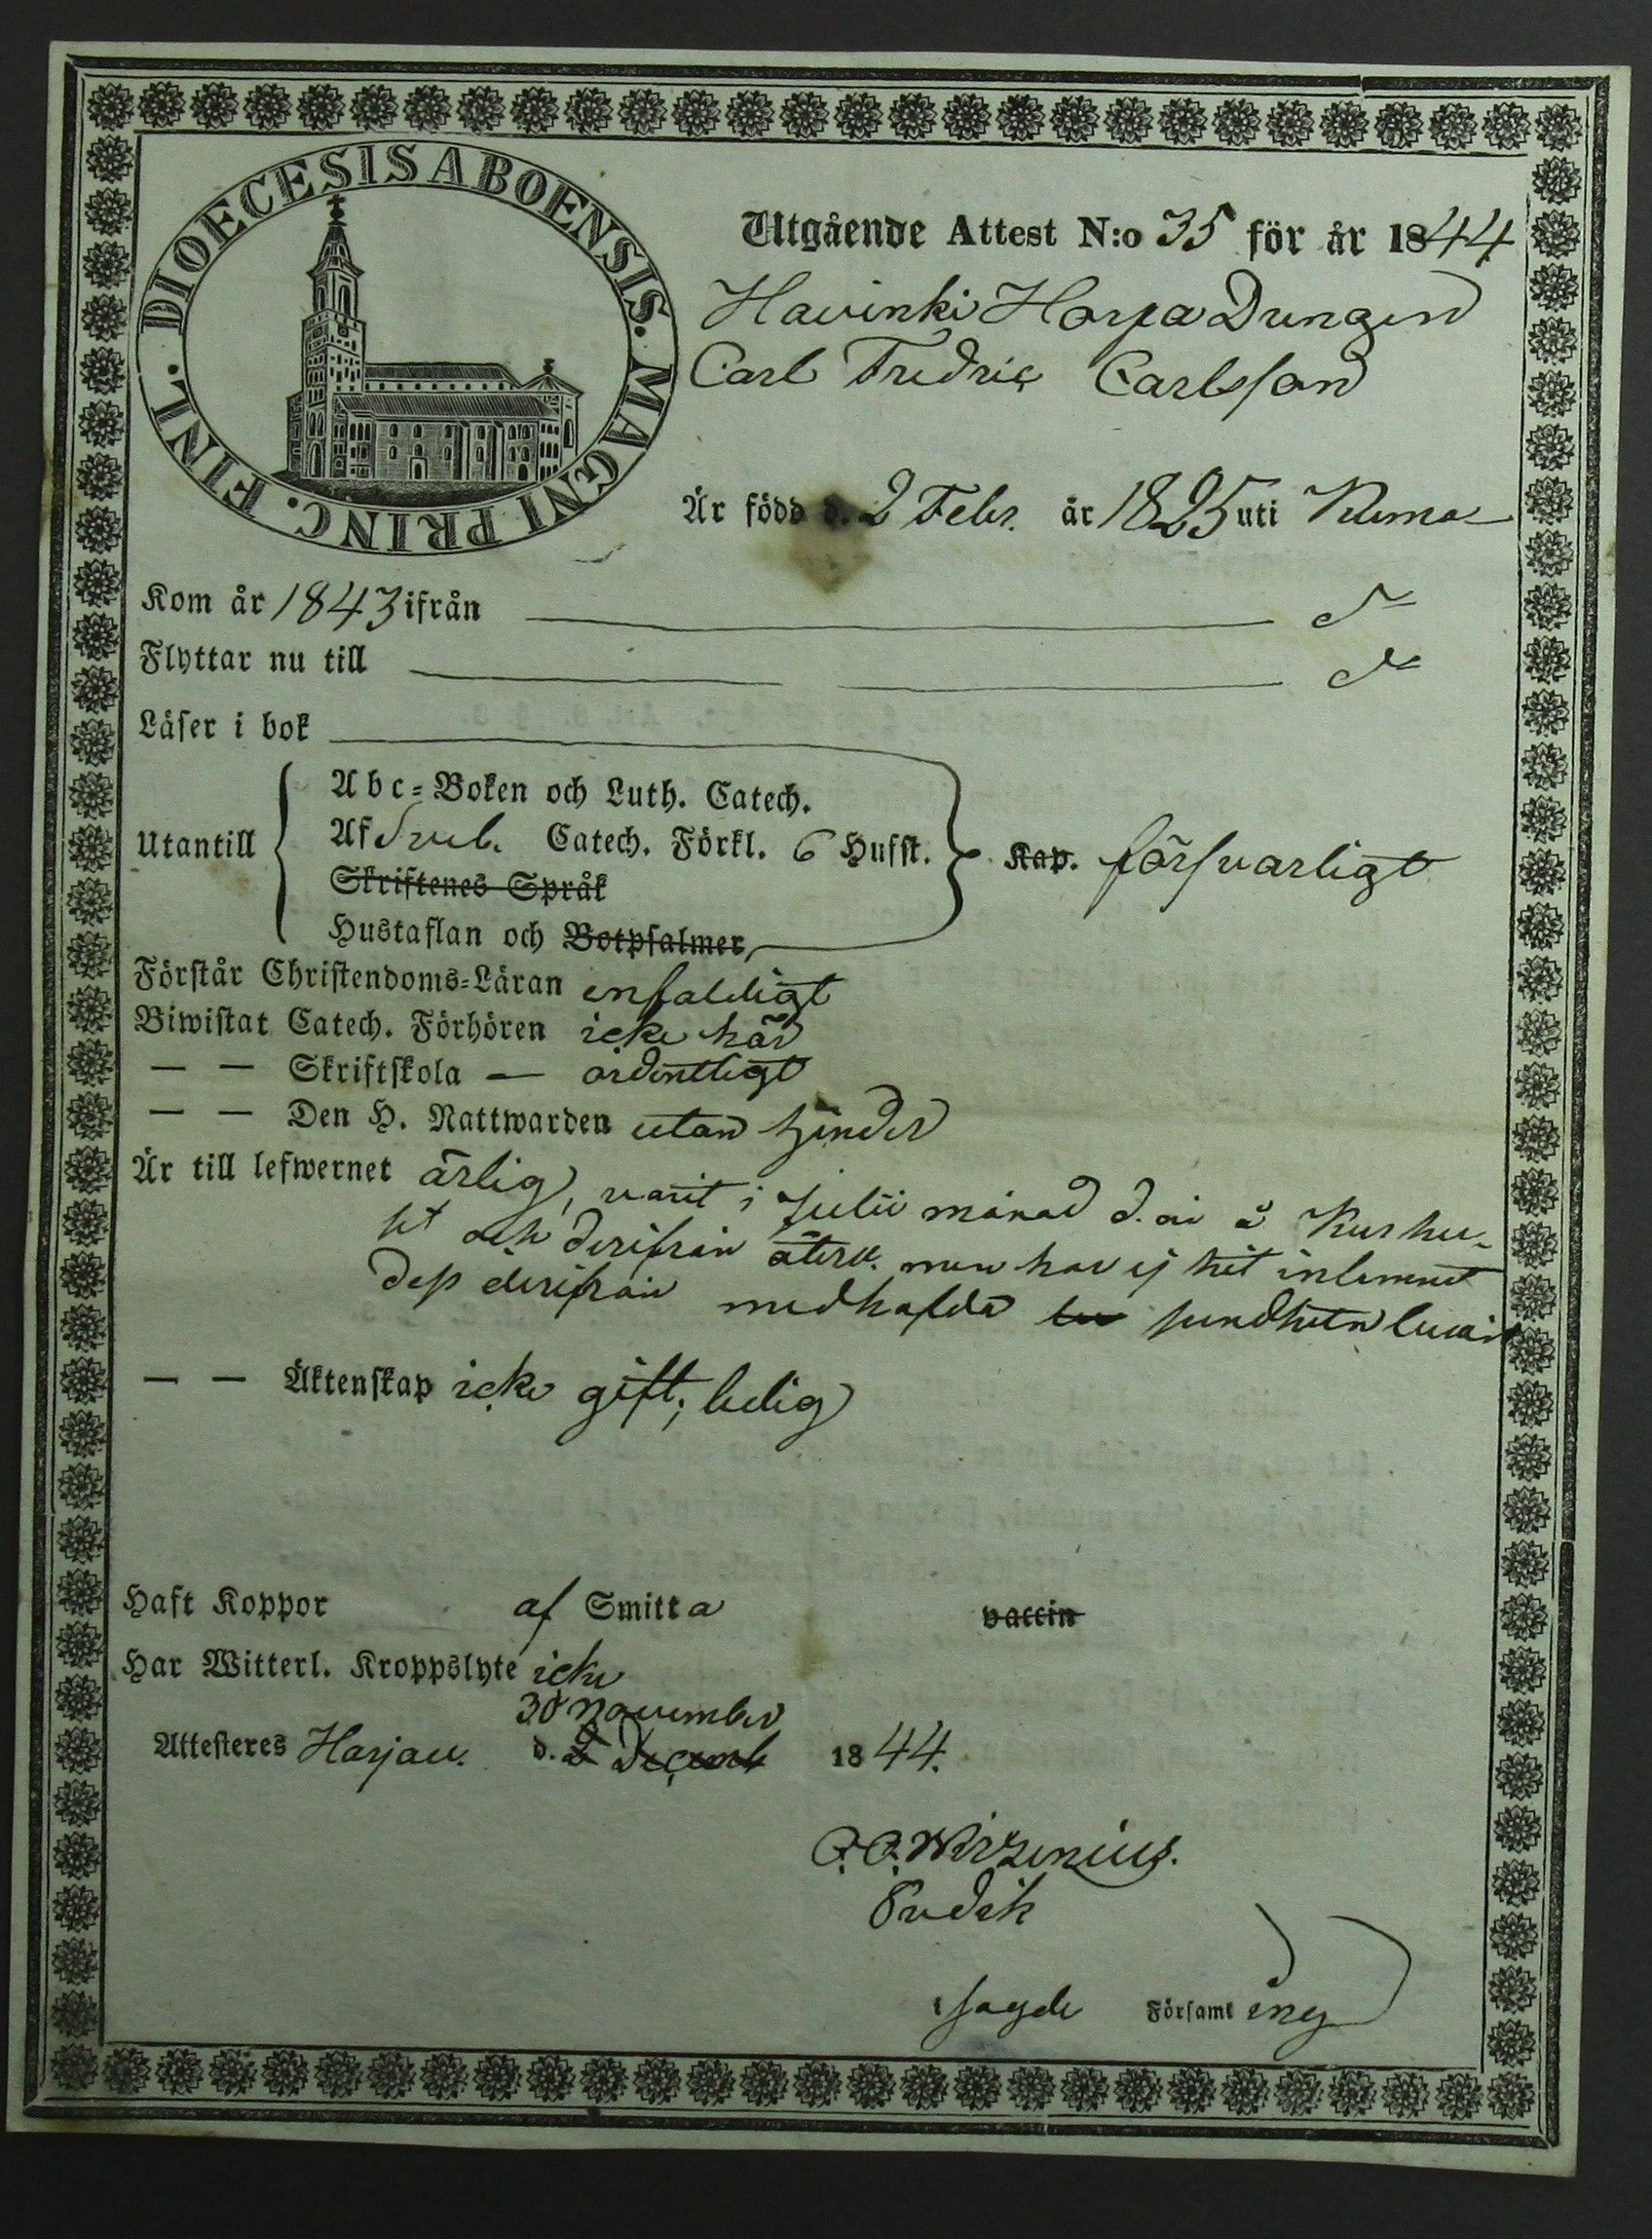 DIOECESIS ABOENSIS. MAGNI PRINC. FINL.
Utgående Attest N:o 35 för år 1844
Havinki Harja Drängen
Carl Fredric Carlsson
Är född d. 2 Febr. år 1825 uti Kumo
Kom år 1843 ifrån
Flyttar nu till
Läser i bok
Abc-Boken och Luth. Catech.
Utantill Af Sveb. Catech. Förkl. 6 Hufst. Kap. försvarligt
Skriftenes Språk
Hustaflan och Botpsalmer
Förstår Christendoms-Läran enfaldigt
Biwistat Catech. Förhören icke här
— — Skriftskola — ordentligt
— — Den H. Nattwarden utan hinder
Är till lefwernet ärlig, varit i Julii månad d. år å Kurhu-
set och derifrån återk. men har ej hit inlemnat
dess derifrån medhafda sundhets bevis
— — Äktenskap icke gift; ledig
Haft Koppor af Smitta vaccin
Har Witterl. Kroppslyte icke
30 November
Attesteres Harjav. d. 2 Decemb 1844.
Wirzenius.
Församl ing